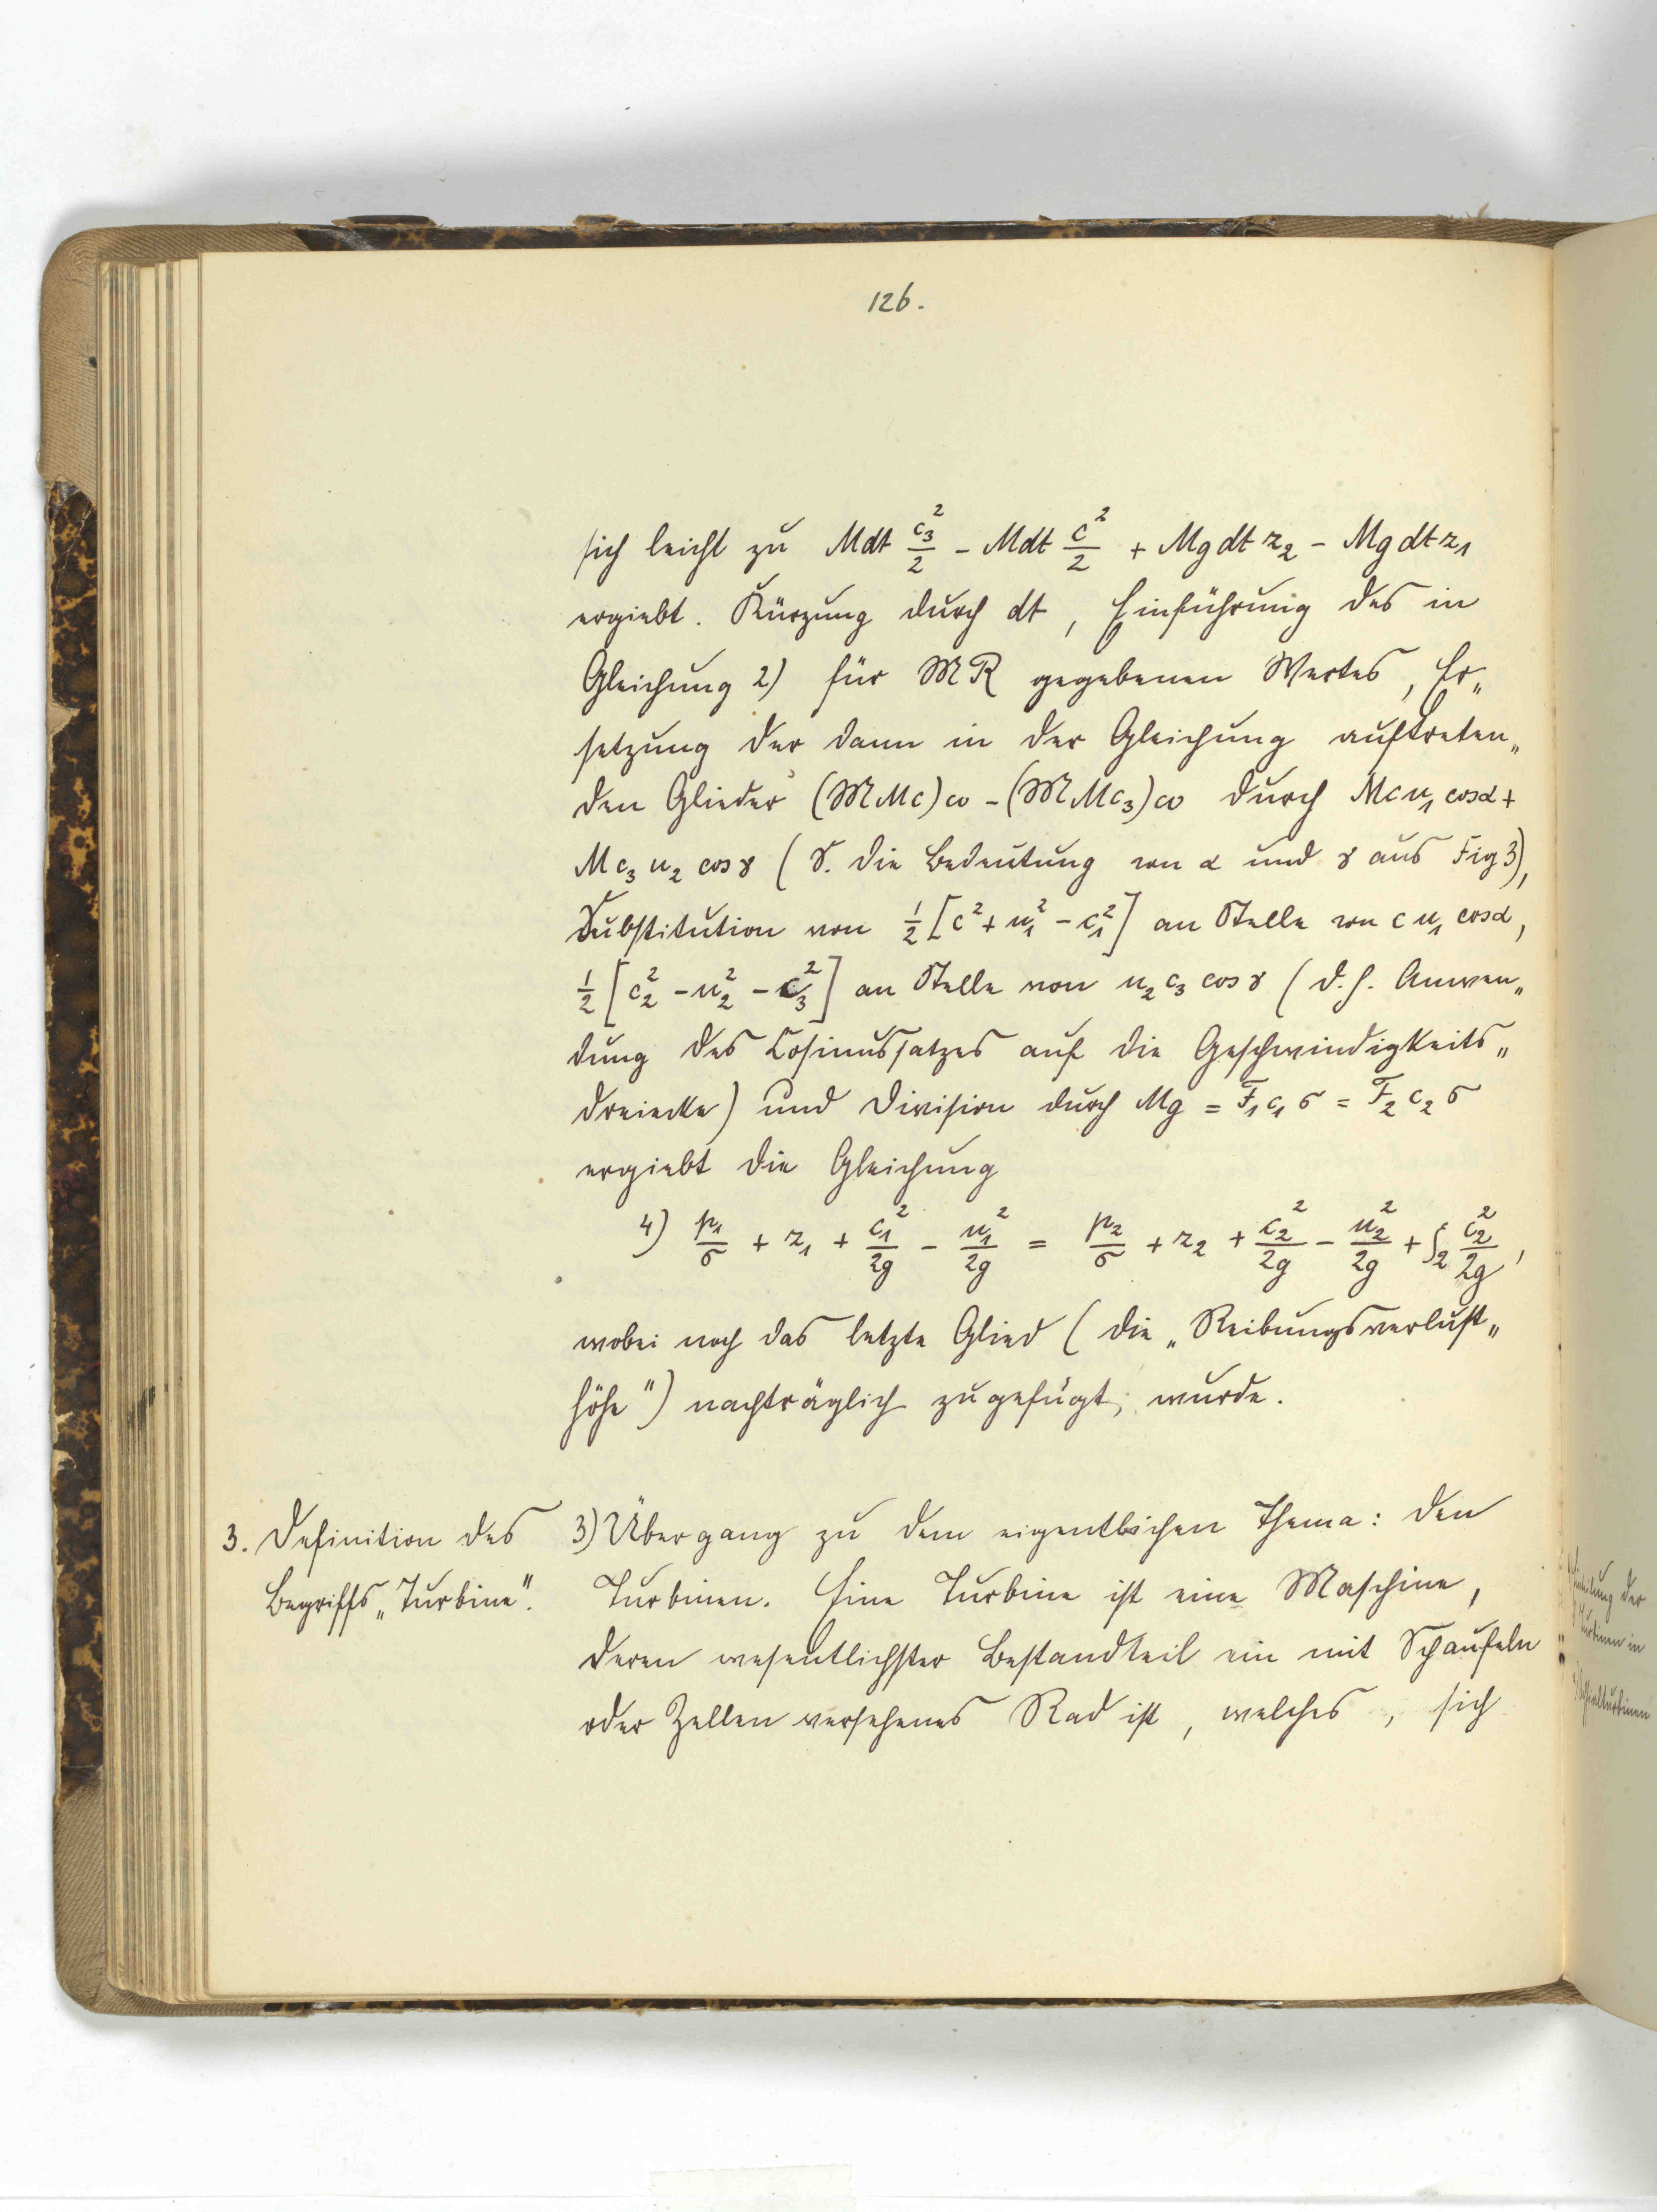 126.
sich leicht zu Mdt c₃²/2 – Mdt c²/2 + Mgdt z₂ – Mgdt z₁
ergiebt. Kürzung durch dt, Einführung des in
Gleichung 2) für 𝔐R gegebenen Wertes, Er„
setzung der dann in der Gleichung auftreten„
den Glieder (𝔐Mc)ω – (𝔐Mc₃)ω durch Mcu₁ cosα +
Mc₃u₂ cosγ (S. die Bedeutung von α und γ aus Fig 3),
Substitution von ½[c² + u₁² – c₁²] an Stelle von cu₁ cosα,
½[c₂² – u₂² – c₃²] an Stelle von u₂c₃ cosγ (d.h. Anwen„
dung des Cosinussatzes auf die Geschwindigkeits„
dreiecke) und Division durch Mg = F₁c₁σ = F₂c₂σ
ergiebt die Gleichung
4) p₁/σ + z₁ + c₁²/2g – u₁²/2g = p₂/σ + z₂ + c₂²/2g – u₂²/2g + ζ₂ c₂²/2g,
wobei noch das letzte Glied (die „Reibungsverlust„
höhe") nachträglich zugefügt, wurde.
3. Definition des
Begriffs „Turbine".
3) Übergang zu dem eigentlichen Thema: den
Turbinen. Eine Turbine ist eine Maschine,
deren wesentlichster Bestandteil ein mit Schaufeln
oder Zellen versehenes Rad ist, welches, sich
der
Turbinen in